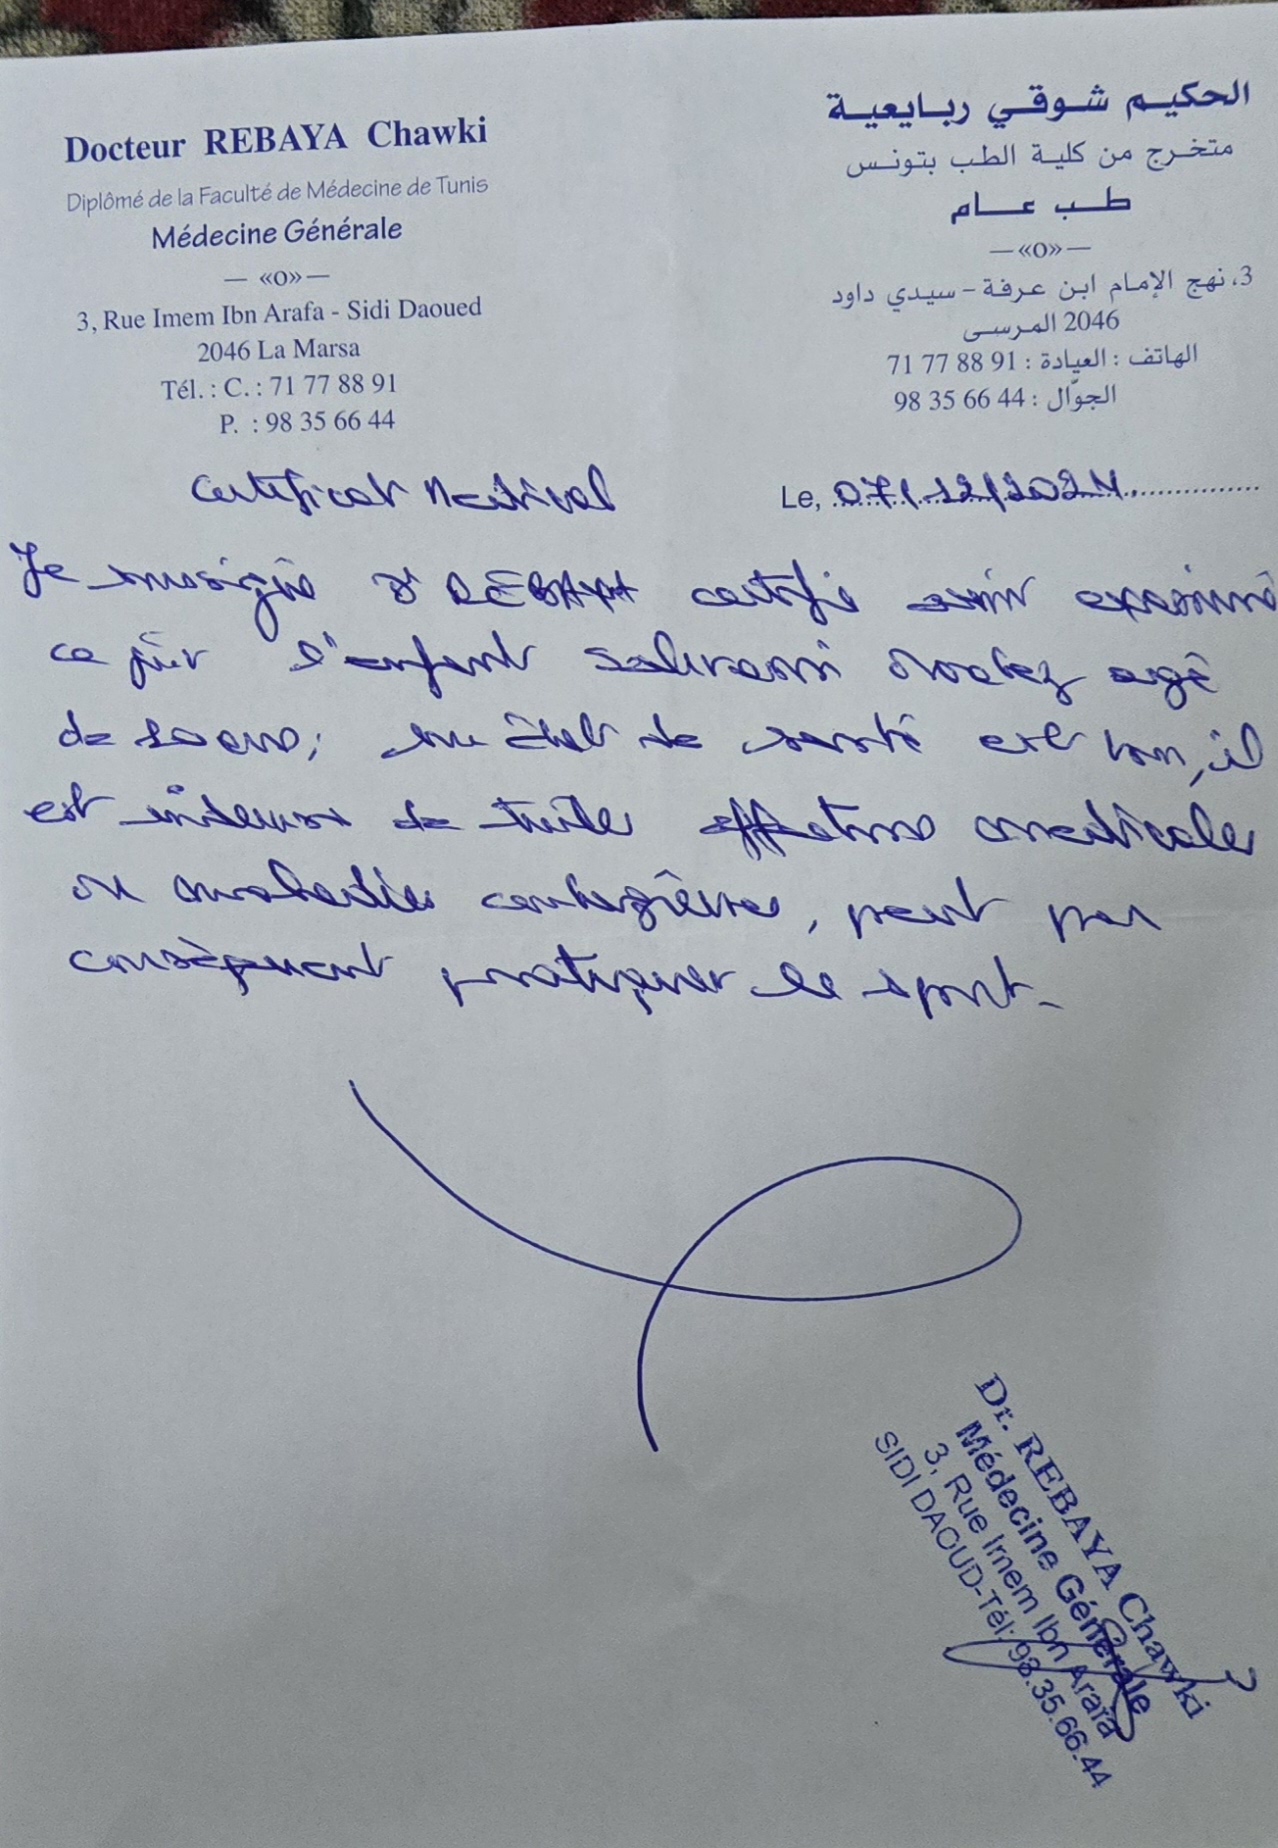 Docteur REBAYA Chawki
Diplômé de la Faculté de Médecine de Tunis
Médecine Générale
— «O» —
3, Rue Imem Ibn Arafa - Sidi Daoued
2046 La Marsa
Tél. : C. : 71 77 88 91
P. : 98 35 66 44
الحكيم شوقي ربايعية
متخرج من كلية الطب بتونس
طب عام
— «O» —
3، نهج الإمام ابن عرفة - سيدي داود
2046 المرسى
الهاتف : العيادة : 71 77 88 91
الجوّال : 98 35 66 44
Certificat Medical
Le, 07/12/2024
Je soussigné Dr REBAYA certifie avoir examiné
ce jour l'enfant agé
de ans; son état de santé est bon, il
est indemne de toutes affections medicales
ou maladies contagieuses, peut par
conséquent pratiquer le sport.
Dr. REBAYA Chawki
Médecine Générale
3, Rue Imem Ibn Arafa
SIDI DAOUD-Tél: 98.35.66.44